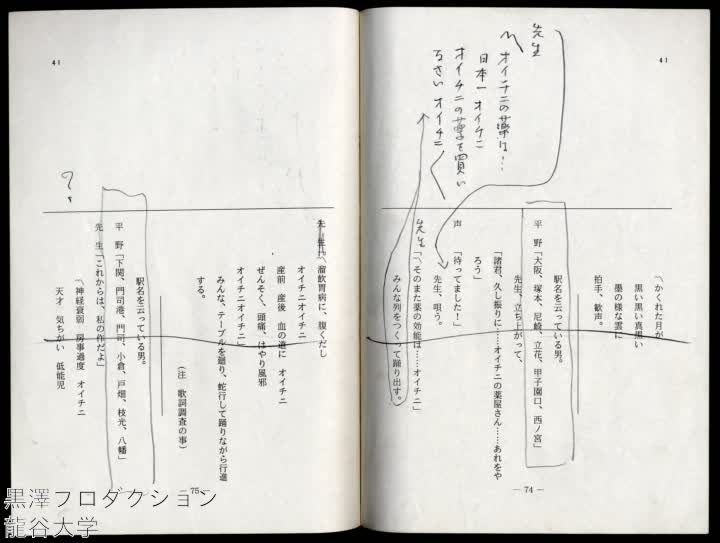 41
先生
〽オイチニの薬は…
日本一 オイチニ
オイチニの薬を買い
なさい オイチニ
〽かくれた月が
黒い黒い真黒い
墨の様な雲に
拍手、歓声。
駅名を云っている男。
平 野「大阪、塚本、尼崎、立花、甲子園口、西ノ宮」
先生、立ち上がって、
「諸君、久し振りに……オイチニの薬屋さん……あれをや
ろう」
声 「待ってました！」
先生、唄う。
先生
「〽そのまた薬の効能は……オイチニ」
みんな列をつくって踊り出す。
— 74 —
41
?
先 生「〽溜飲胃病に、腹くだし
オイチニ
産前 産後 血の道に オイチニ
ぜんそく、頭痛、はやり風邪
オイチニオイチニ」
みんな、テーブルを廻り、蛇行して踊りながら行進
する。
（注 歌詞調査の事）
駅名を云っている男。
平 野「下関、門司港、門司、小倉、戸畑、枝光、八幡」
先 生「これからは、私の作だよ」
〽神経衰弱 房事過度 オイチニ
天才 気ちがい 低能児
— 75 —
黒澤プロダクション
龍谷大学